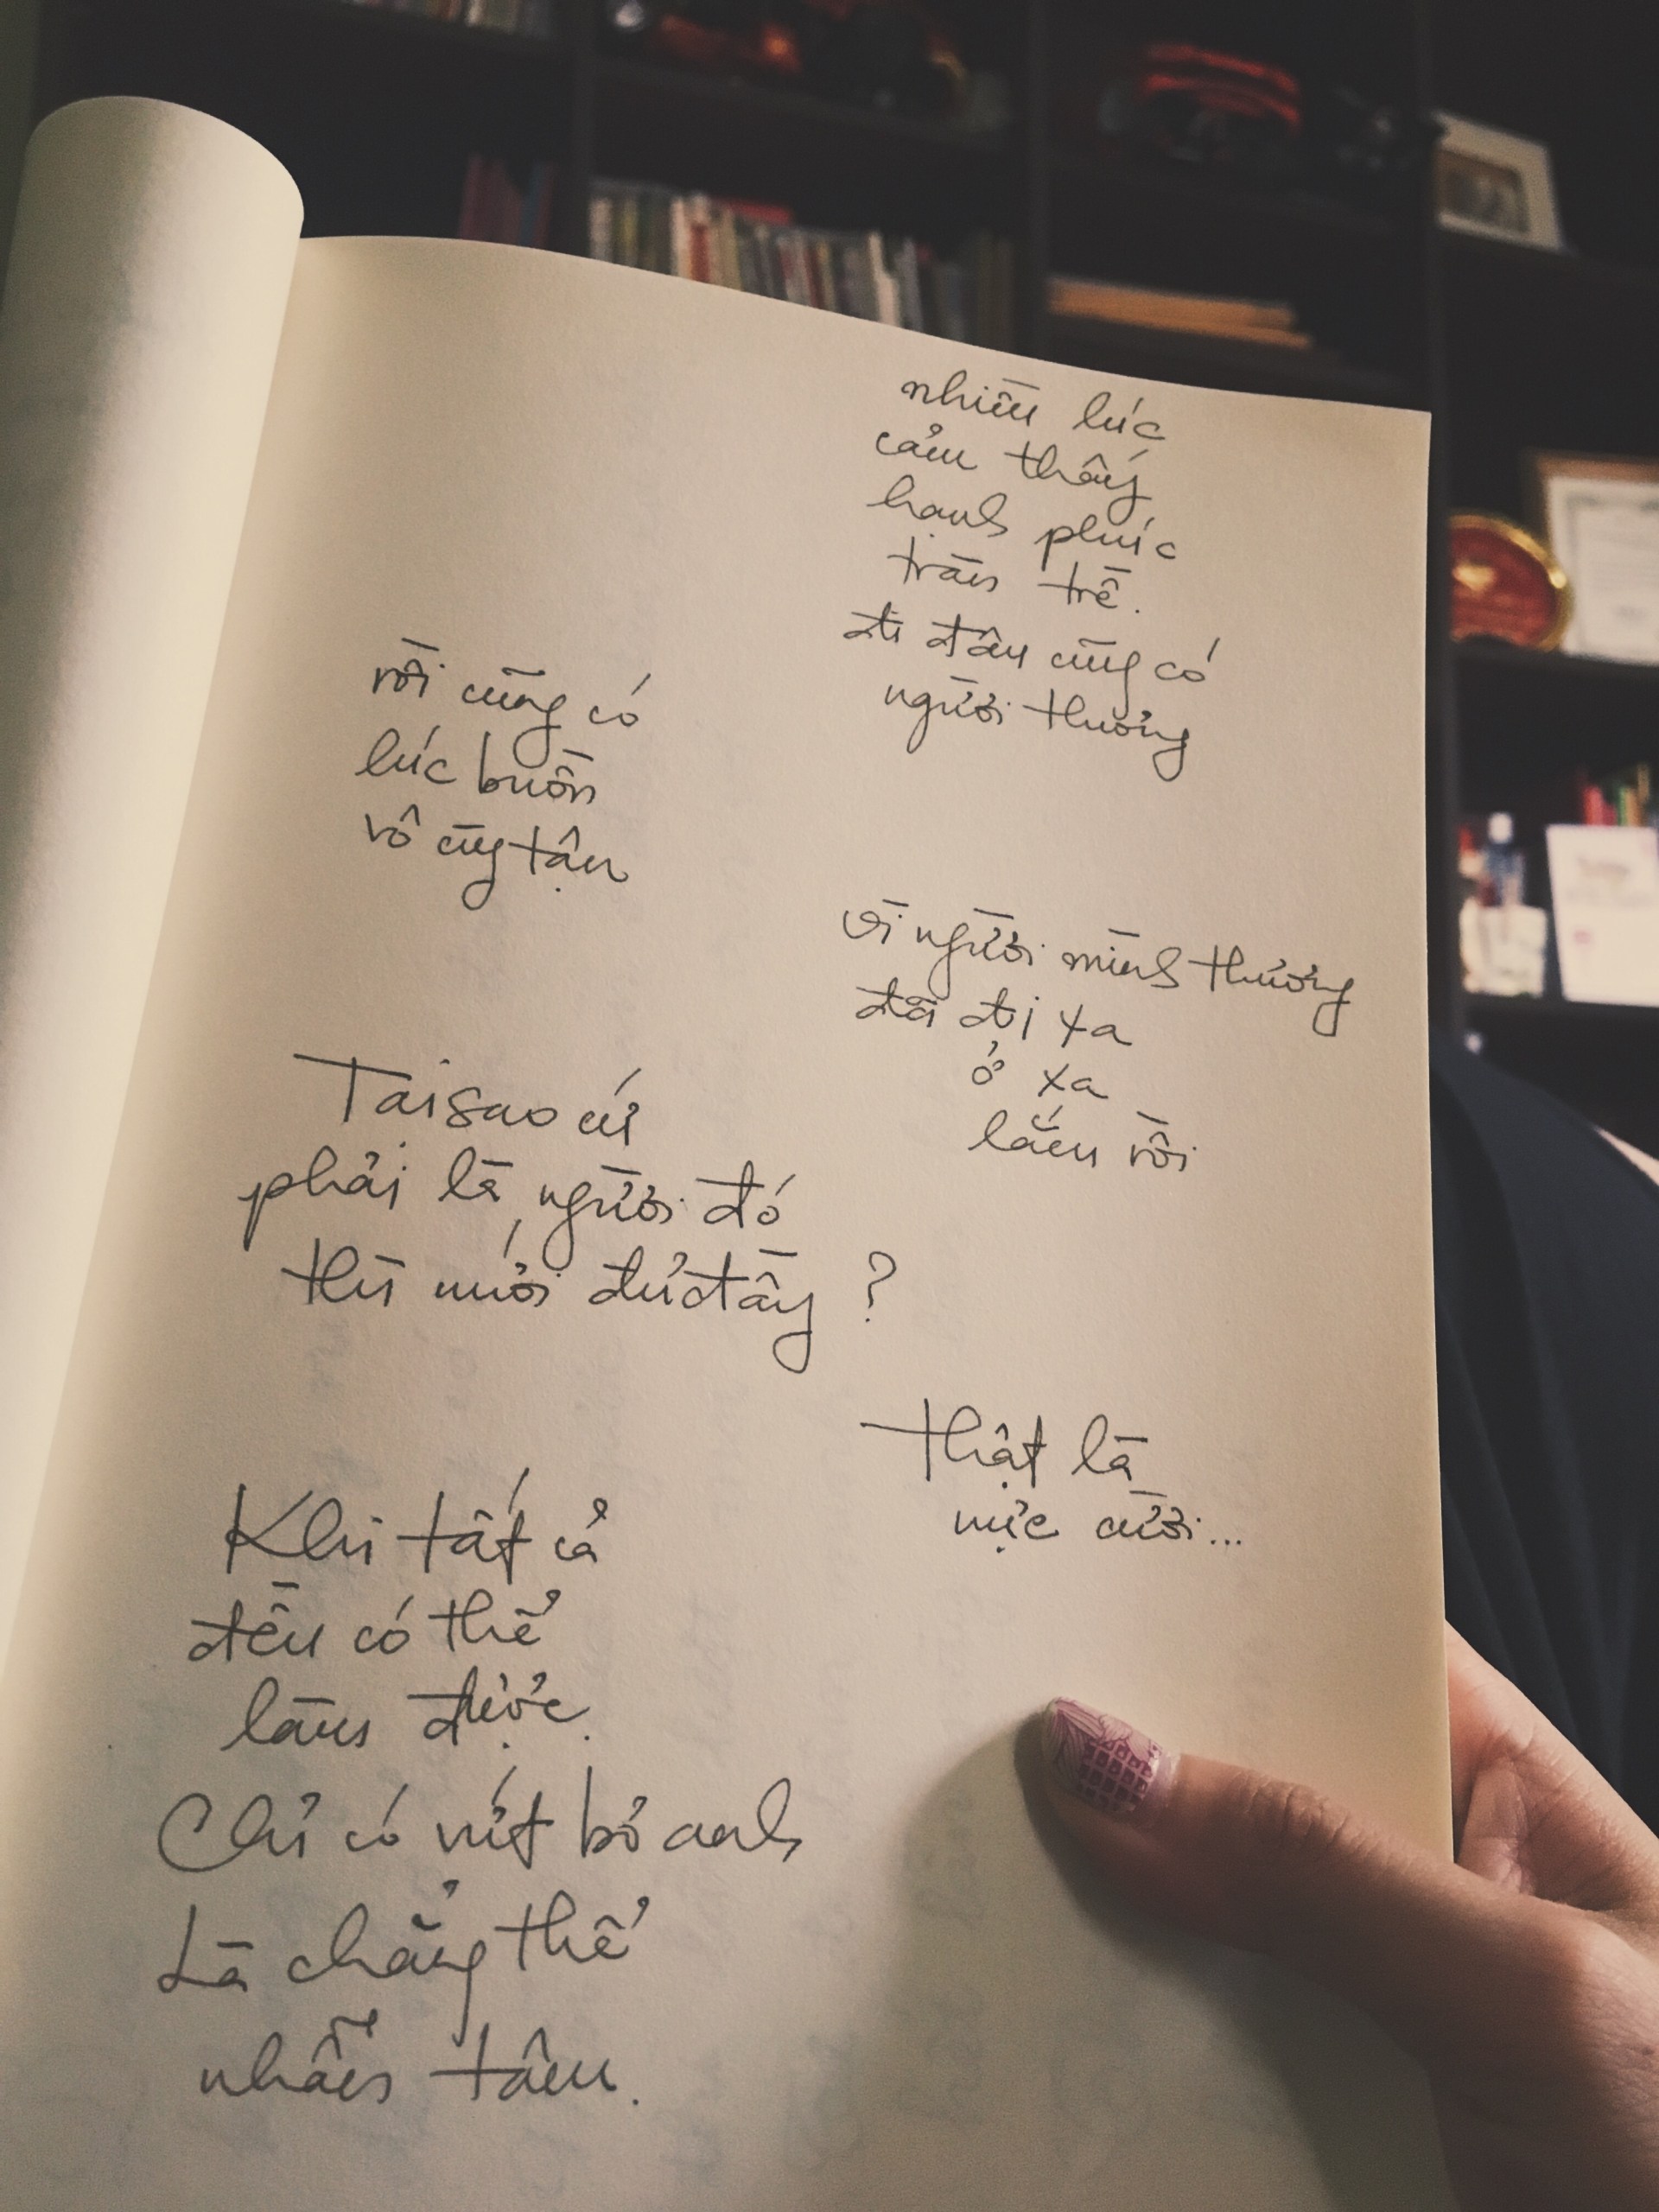 nhiều lúc
cảm thấy
hạnh phúc
tràn trề.
đi đâu cũng có
người thương
rồi cũng có
lúc buồn
vô cùng tận
vì người mình thương
đã đi xa
ở xa
lắm rồi
Tại sao cứ
phải là người đó
thì mới đủ đầy ?
thật là
nực cười...
Khi tất cả
đều có thể
làm được.
Chỉ có vứt bỏ anh
Là chẳng thể
nhẫn tâm.